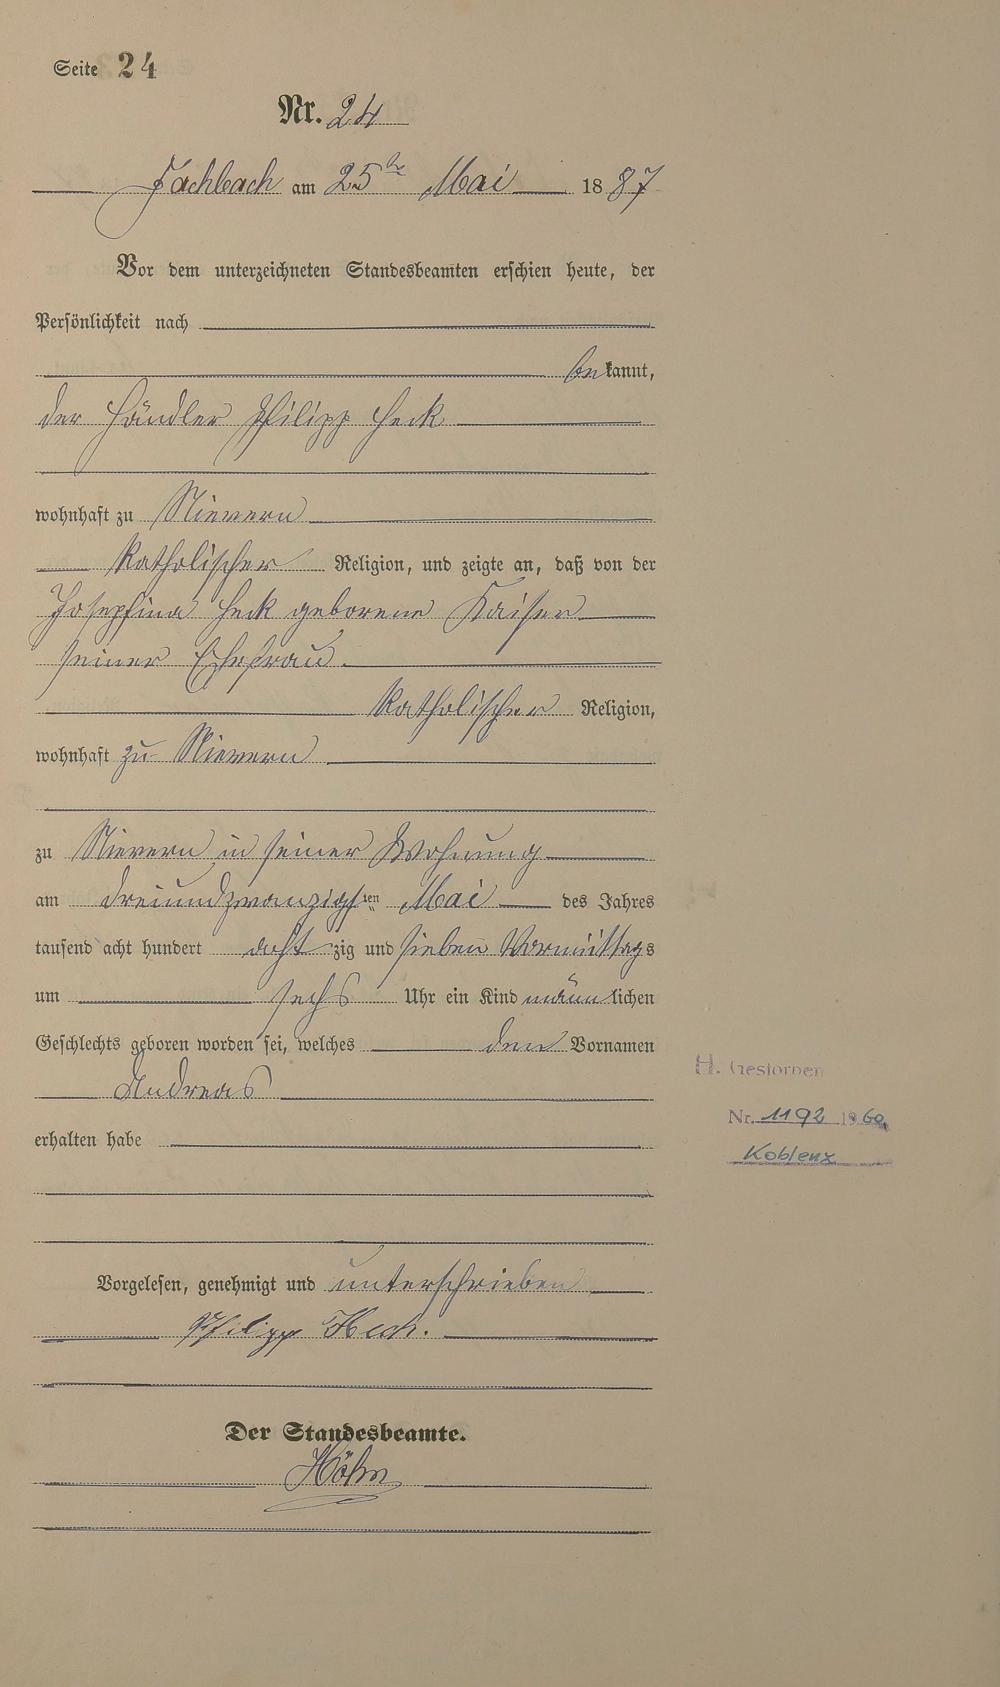 Seite 24
Nr. 24
Fachbach am 25ten Mai 1887
Vor dem unterzeichneten Standesbeamten erschien heute, der
Persönlichkeit nach
bekannt,
der Händler Philipp Heck
wohnhaft zu Nievern
katholischer Religion, und zeigte an, daß von der
Josephina Heck geborene Kaiser
seiner Ehefrau
katholischer Religion,
wohnhaft zu Nievern
zu Nievern in seiner Wohnung
am dreiundzwanzigsten Mai des Jahres
tausend acht hundert achtzig und sieben Vormittags
um sechs Uhr ein Kind männlichen
Geschlechts geboren worden sei, welches den Vornamen
Andreas
H. Gestorben
Nr. 1192 1960
Koblenz
erhalten habe
Vorgelesen, genehmigt und unterschrieben
Philipp Heck.
Der Standesbeamte.
Höhn